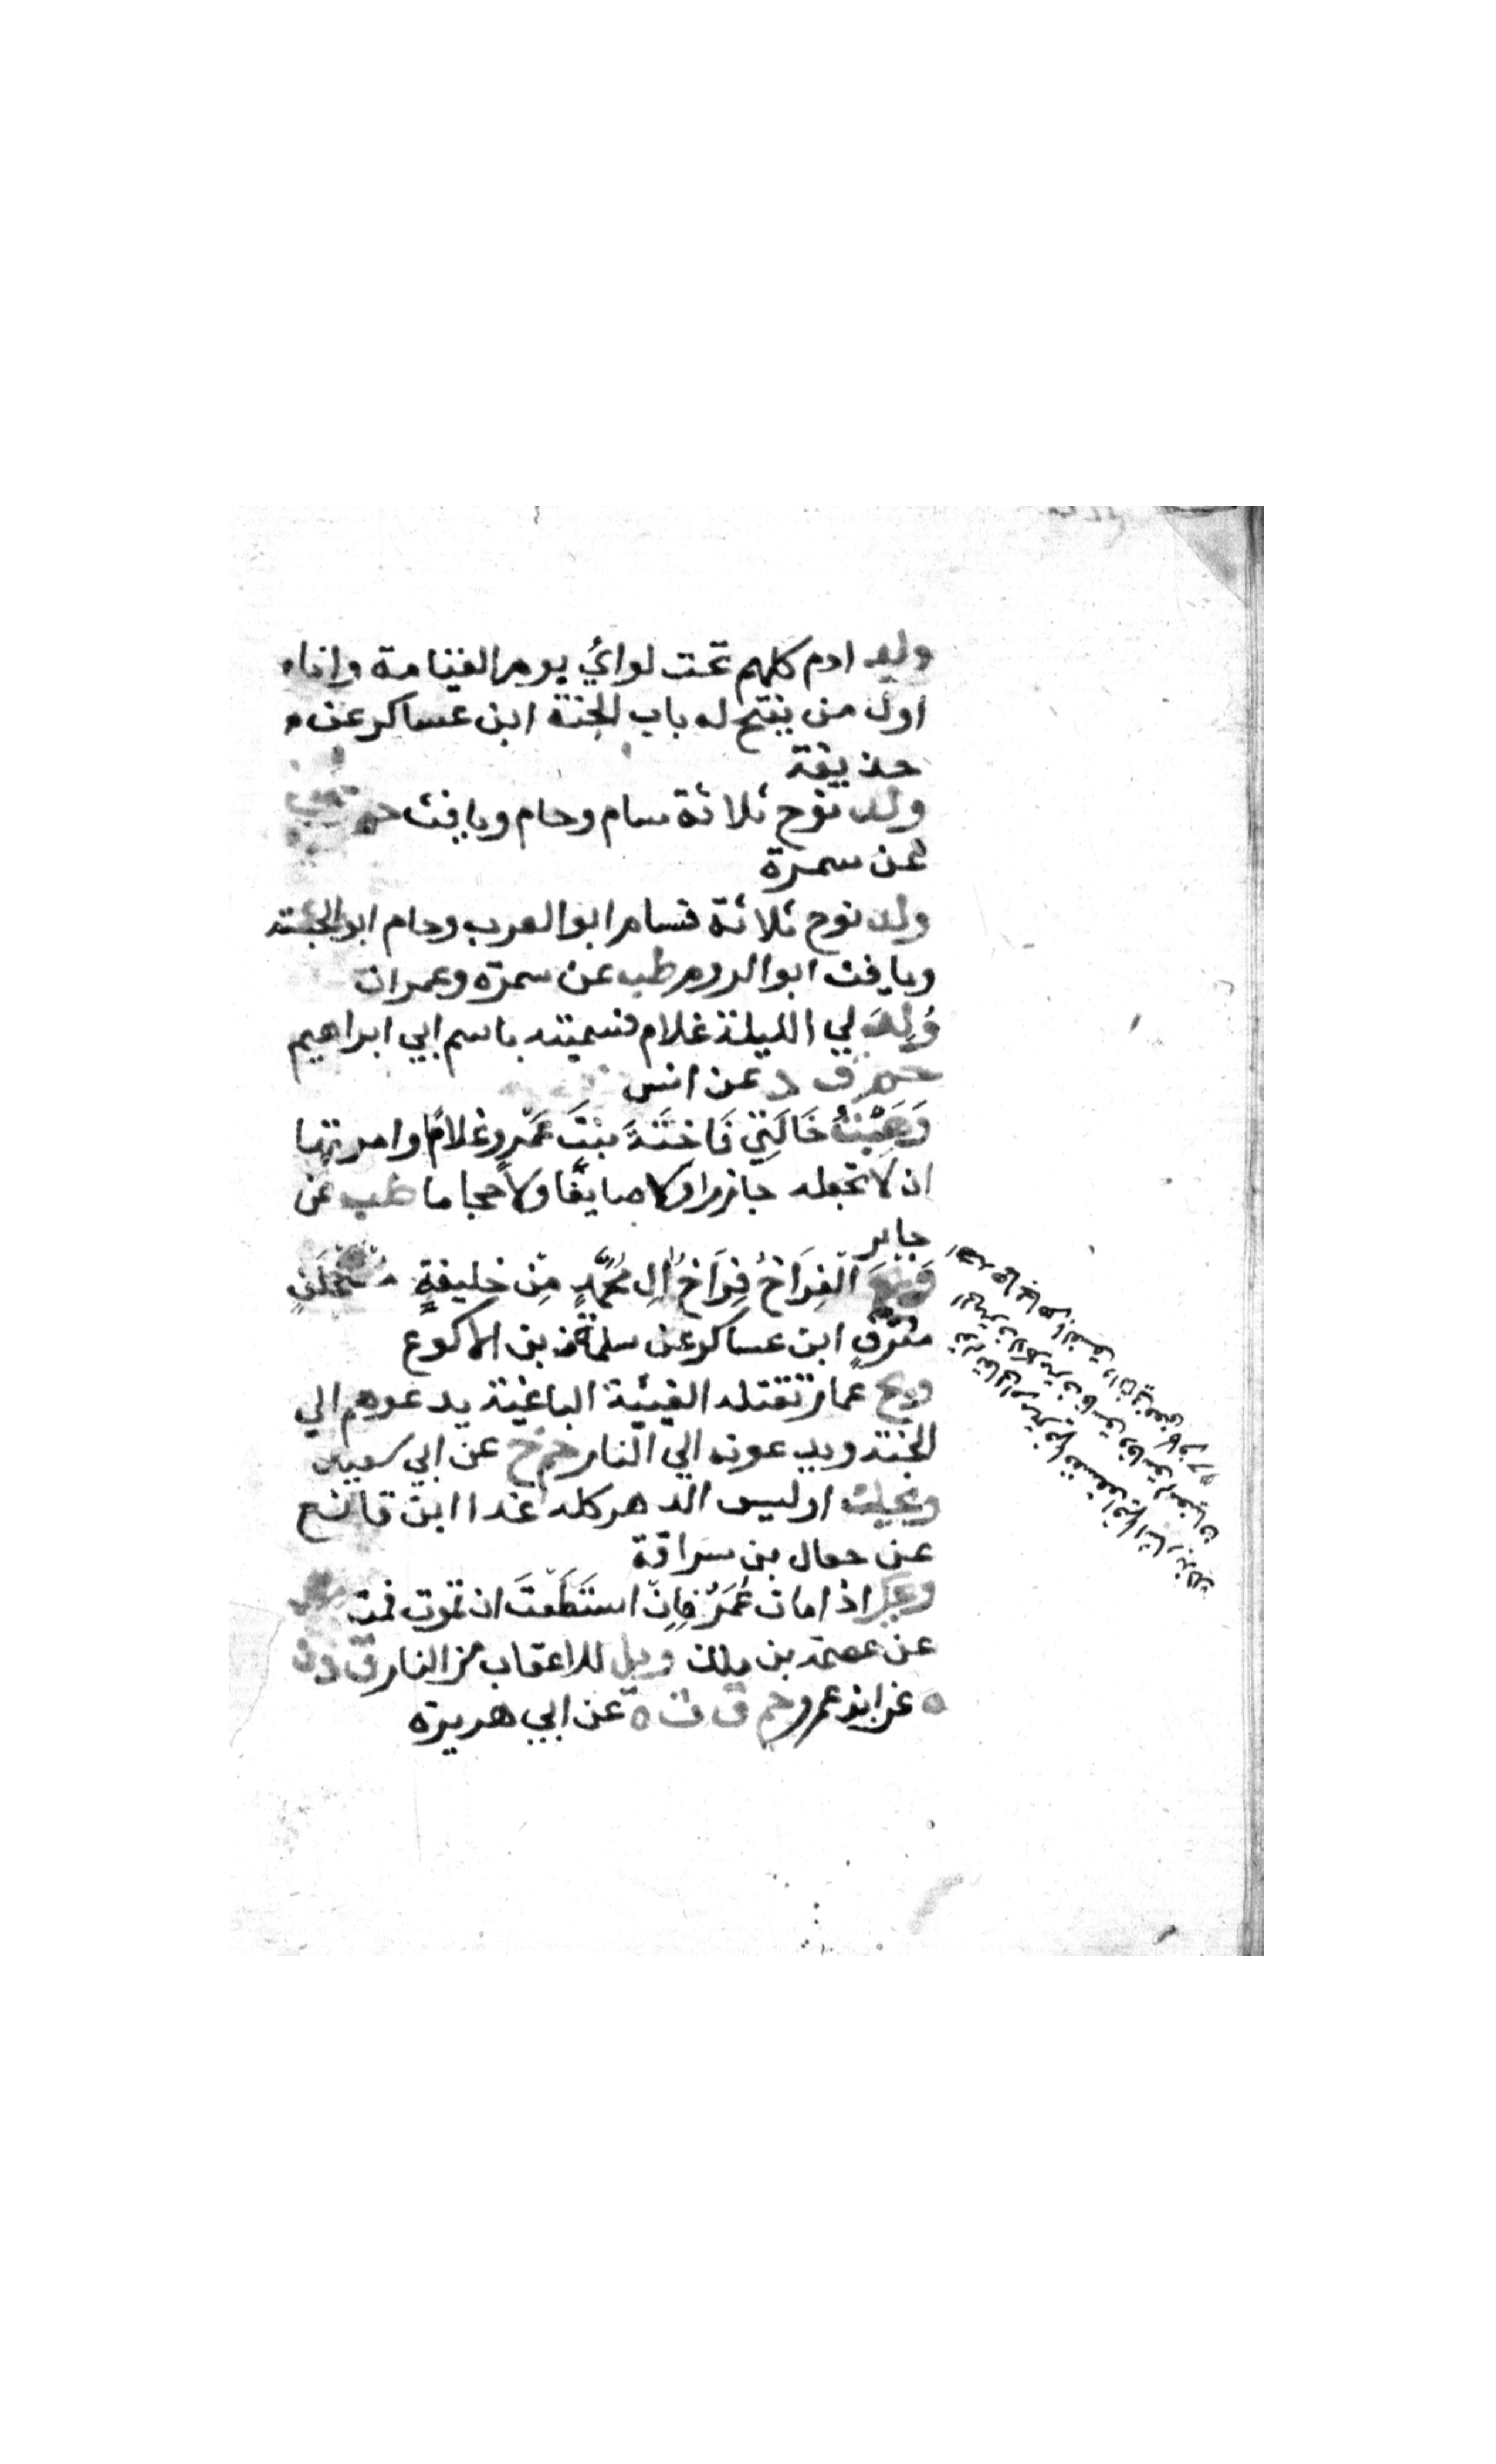 ولد ادم كلهم تحت لوائي يوم القيامة وانا
اول من يفتح له باب الجنة ابن عساكر عن
حذيفة
ولد نوح ثلاثة سام وحام ويافث حم
عن سمرة
ولد نوح ثلاثة فسام ابو العرب وحام ابو الحبشة
ويافث ابو الروم طب عن سمرة وعمران
وُلِدَ لي الليلة غلام فسميته باسم ابي ابراهيم
حم ق د عن انس
وَهَبْتُ خَالَتِي فَاخِتَةَ بِنْتَ عَمْرٍو غلامًا وامرتها
ان لا تجعله جازرا ولا صايغًا ولا حجاما طب عن
جابر
وَيْحَ الْفِرَاخُ فِرَاخُ الِ مُحَمَّدٍ مِنْ خليفةٍ مستخلفٍ
مترفٍ ابن عساكر عن سلمة بن الاكوع
ويح عمار تقتله الفيئة الباغية يدعوهم الي
الجنة ويدعونه الي النار حم خ عن ابي سعيد
ويحك اوليس الدهر كله غدا ابن قانع
عن جعال بن سراقة
ويحك اذا مات عُمَرُ فَاِنْ استَطَعْتَ ان تموت فمت
عن عصمة بن ملك ويل للاعقاب من النار ق د ن
ه عن ابن عمرو حم ق ت ه عن ابي هريرة